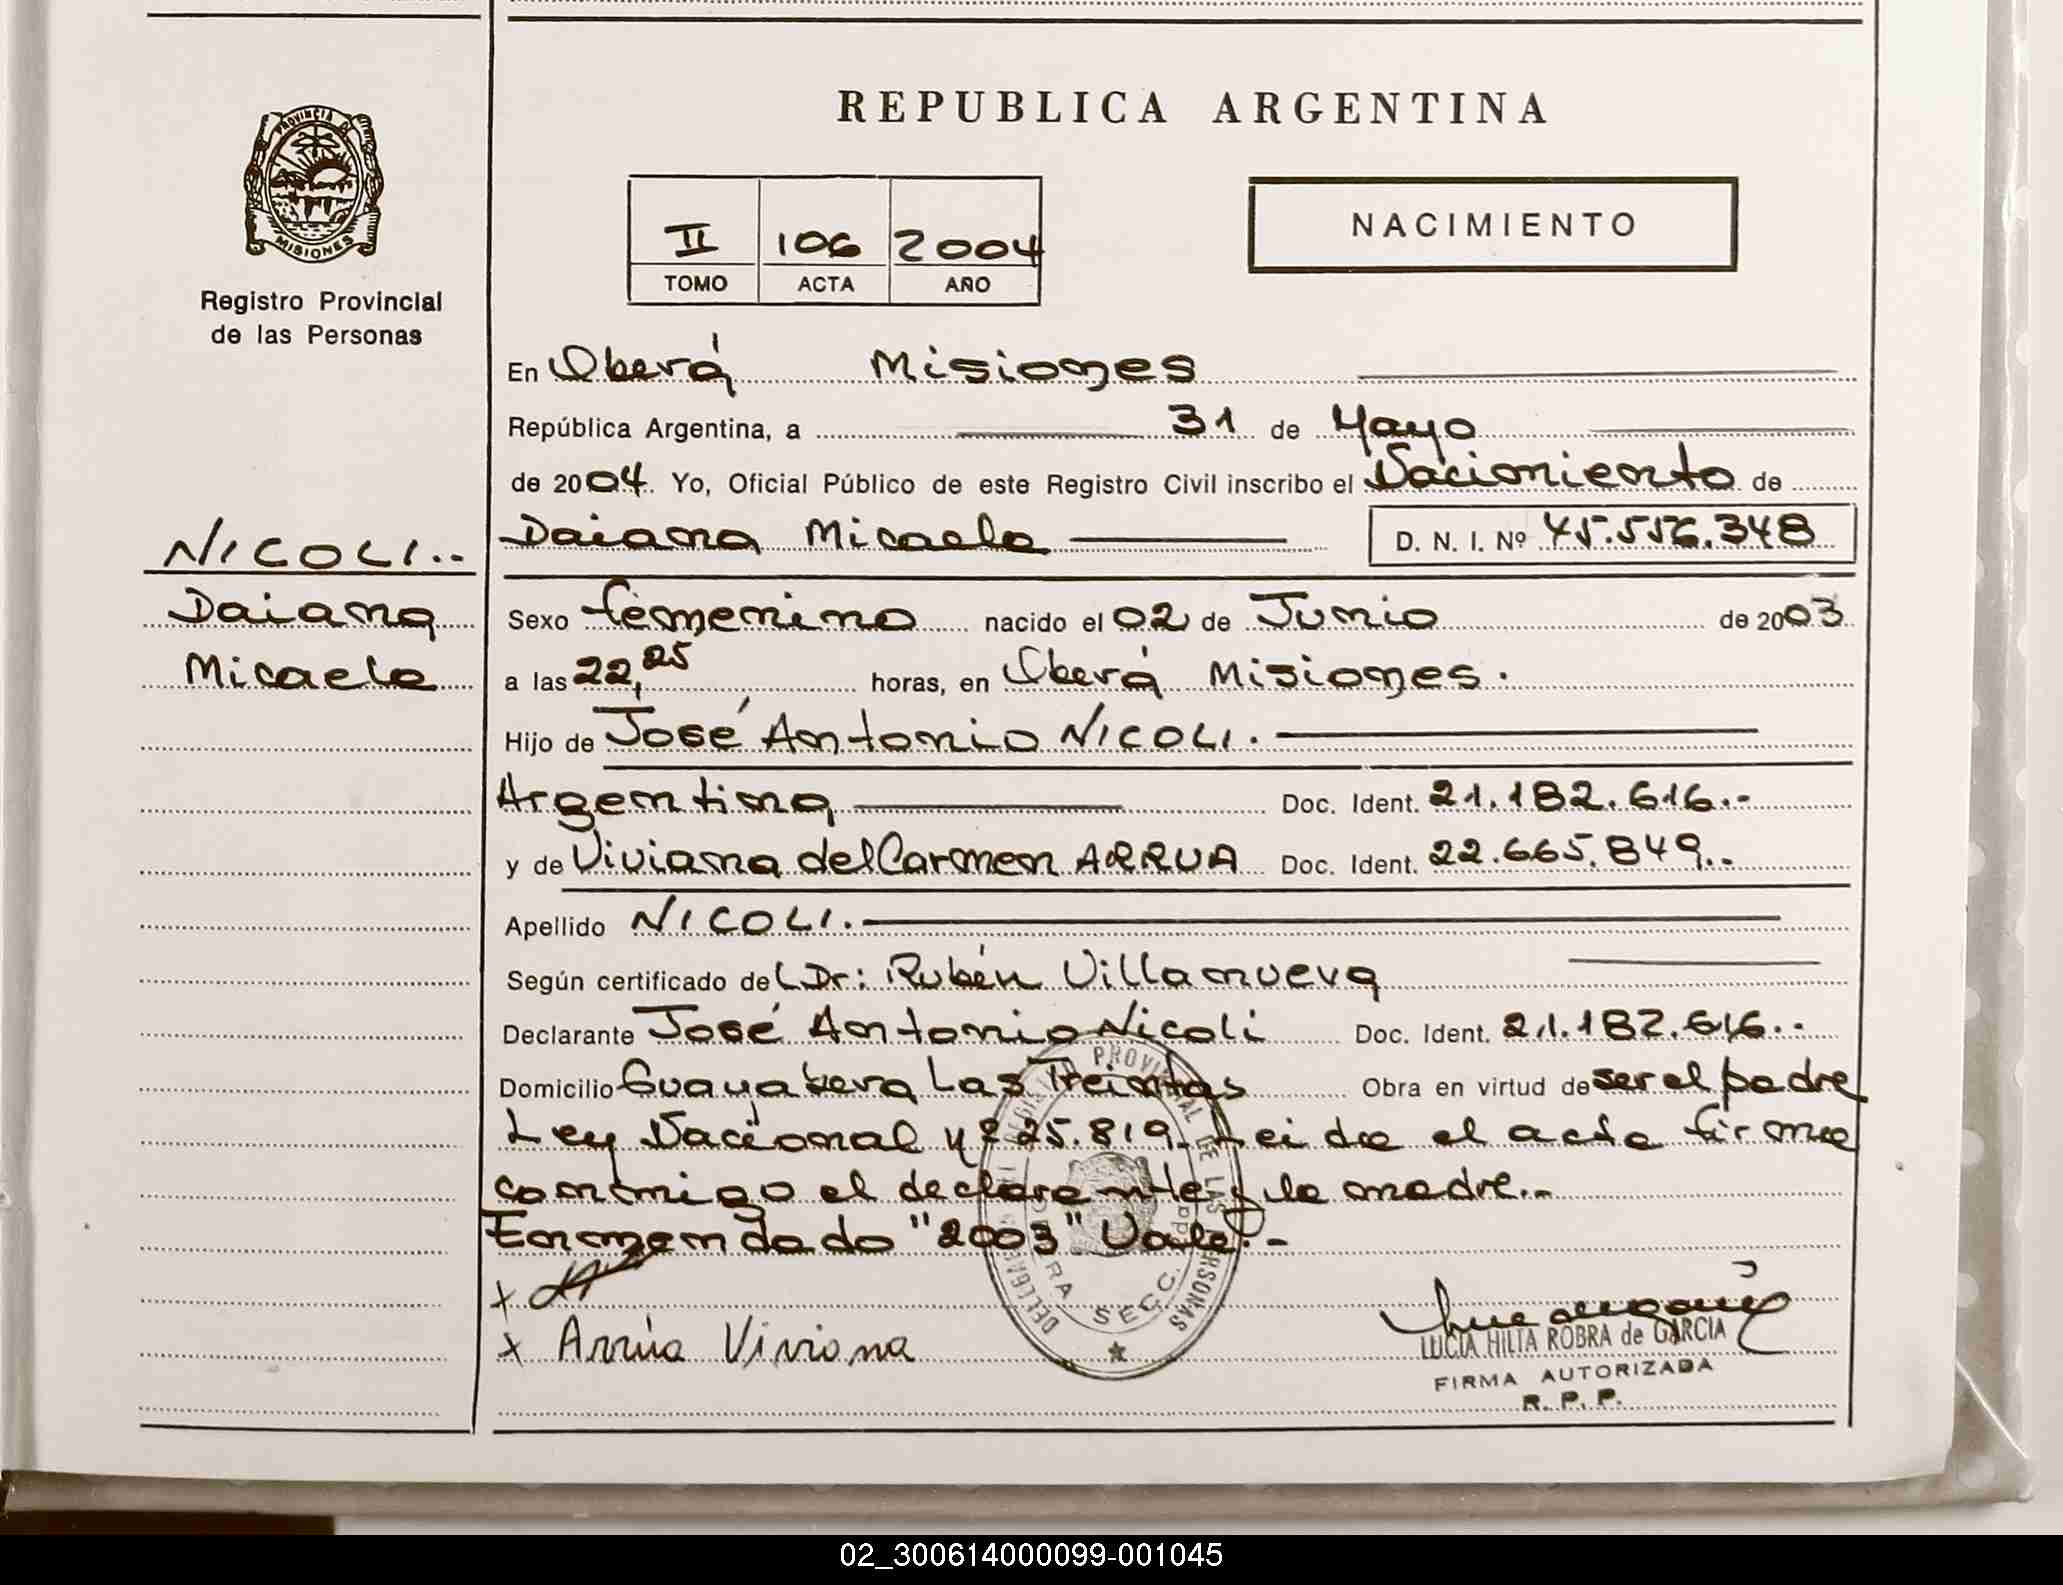 REPUBLICA ARGENTINA
PROVINCIA DE
MISIONES
Registro Provincial
de las Personas
II 106 2004
TOMO ACTA AÑO
NACIMIENTO
En Oberá Misiones
República Argentina, a 31 de Mayo
de 2004. Yo, Oficial Público de este Registro Civil inscribo el Nacimiento de
Daiana Micaela D. N. I. Nº 45.556.348
NICOLI..
Daiana
Micaela
Sexo femenino nacido el 02 de Junio de 2003
a las 22,25 horas, en Oberá Misiones.
Hijo de José Antonio NICOLI.
Argentina Doc. Ident. 21.182.616.-
y de Viviana del Carmen ARRUA Doc. Ident. 22.665.849..
Apellido NICOLI.
Según certificado de Dr: Rubén Villanueva
Declarante José Antonio Nicoli Doc. Ident. 21.182.616..
Domicilio Guayabera Las Treintas Obra en virtud de ser el padre
Ley Nacional Nº 25.819. Leida el acta firma
conmigo el declarante y la madre..
Enmendado "2003" Vale.-
x
x Arrúa Viviana
PROVINCIAL DE LAS PERSONAS
SECC.
LUCIA HILTA ROBRA de GARCIA
FIRMA AUTORIZADA
R. P. P.
02_300614000099-001045